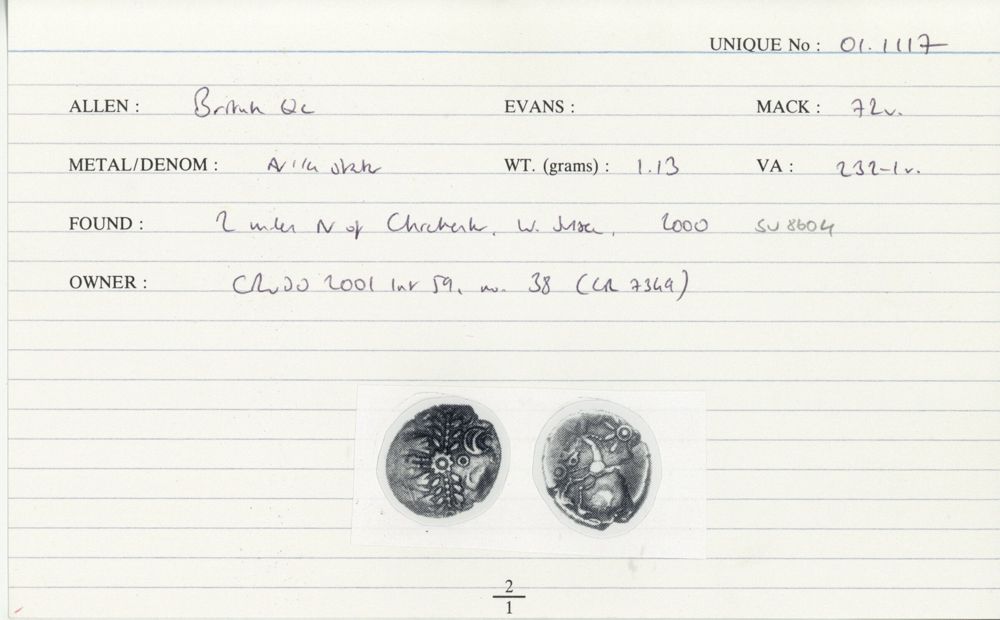 UNIQUE No : 01.1117
ALLEN : British Qc EVANS : MACK : 72v.
METAL/DENOM : AV 1/4 stater WT. (grams) : 1.13 VA : 232-1v.
FOUND : 2 miles N of Chichester, W. Sussex, 2000 SU 8604
OWNER : 2001 59, no. 38 (CR 734a)
2
1